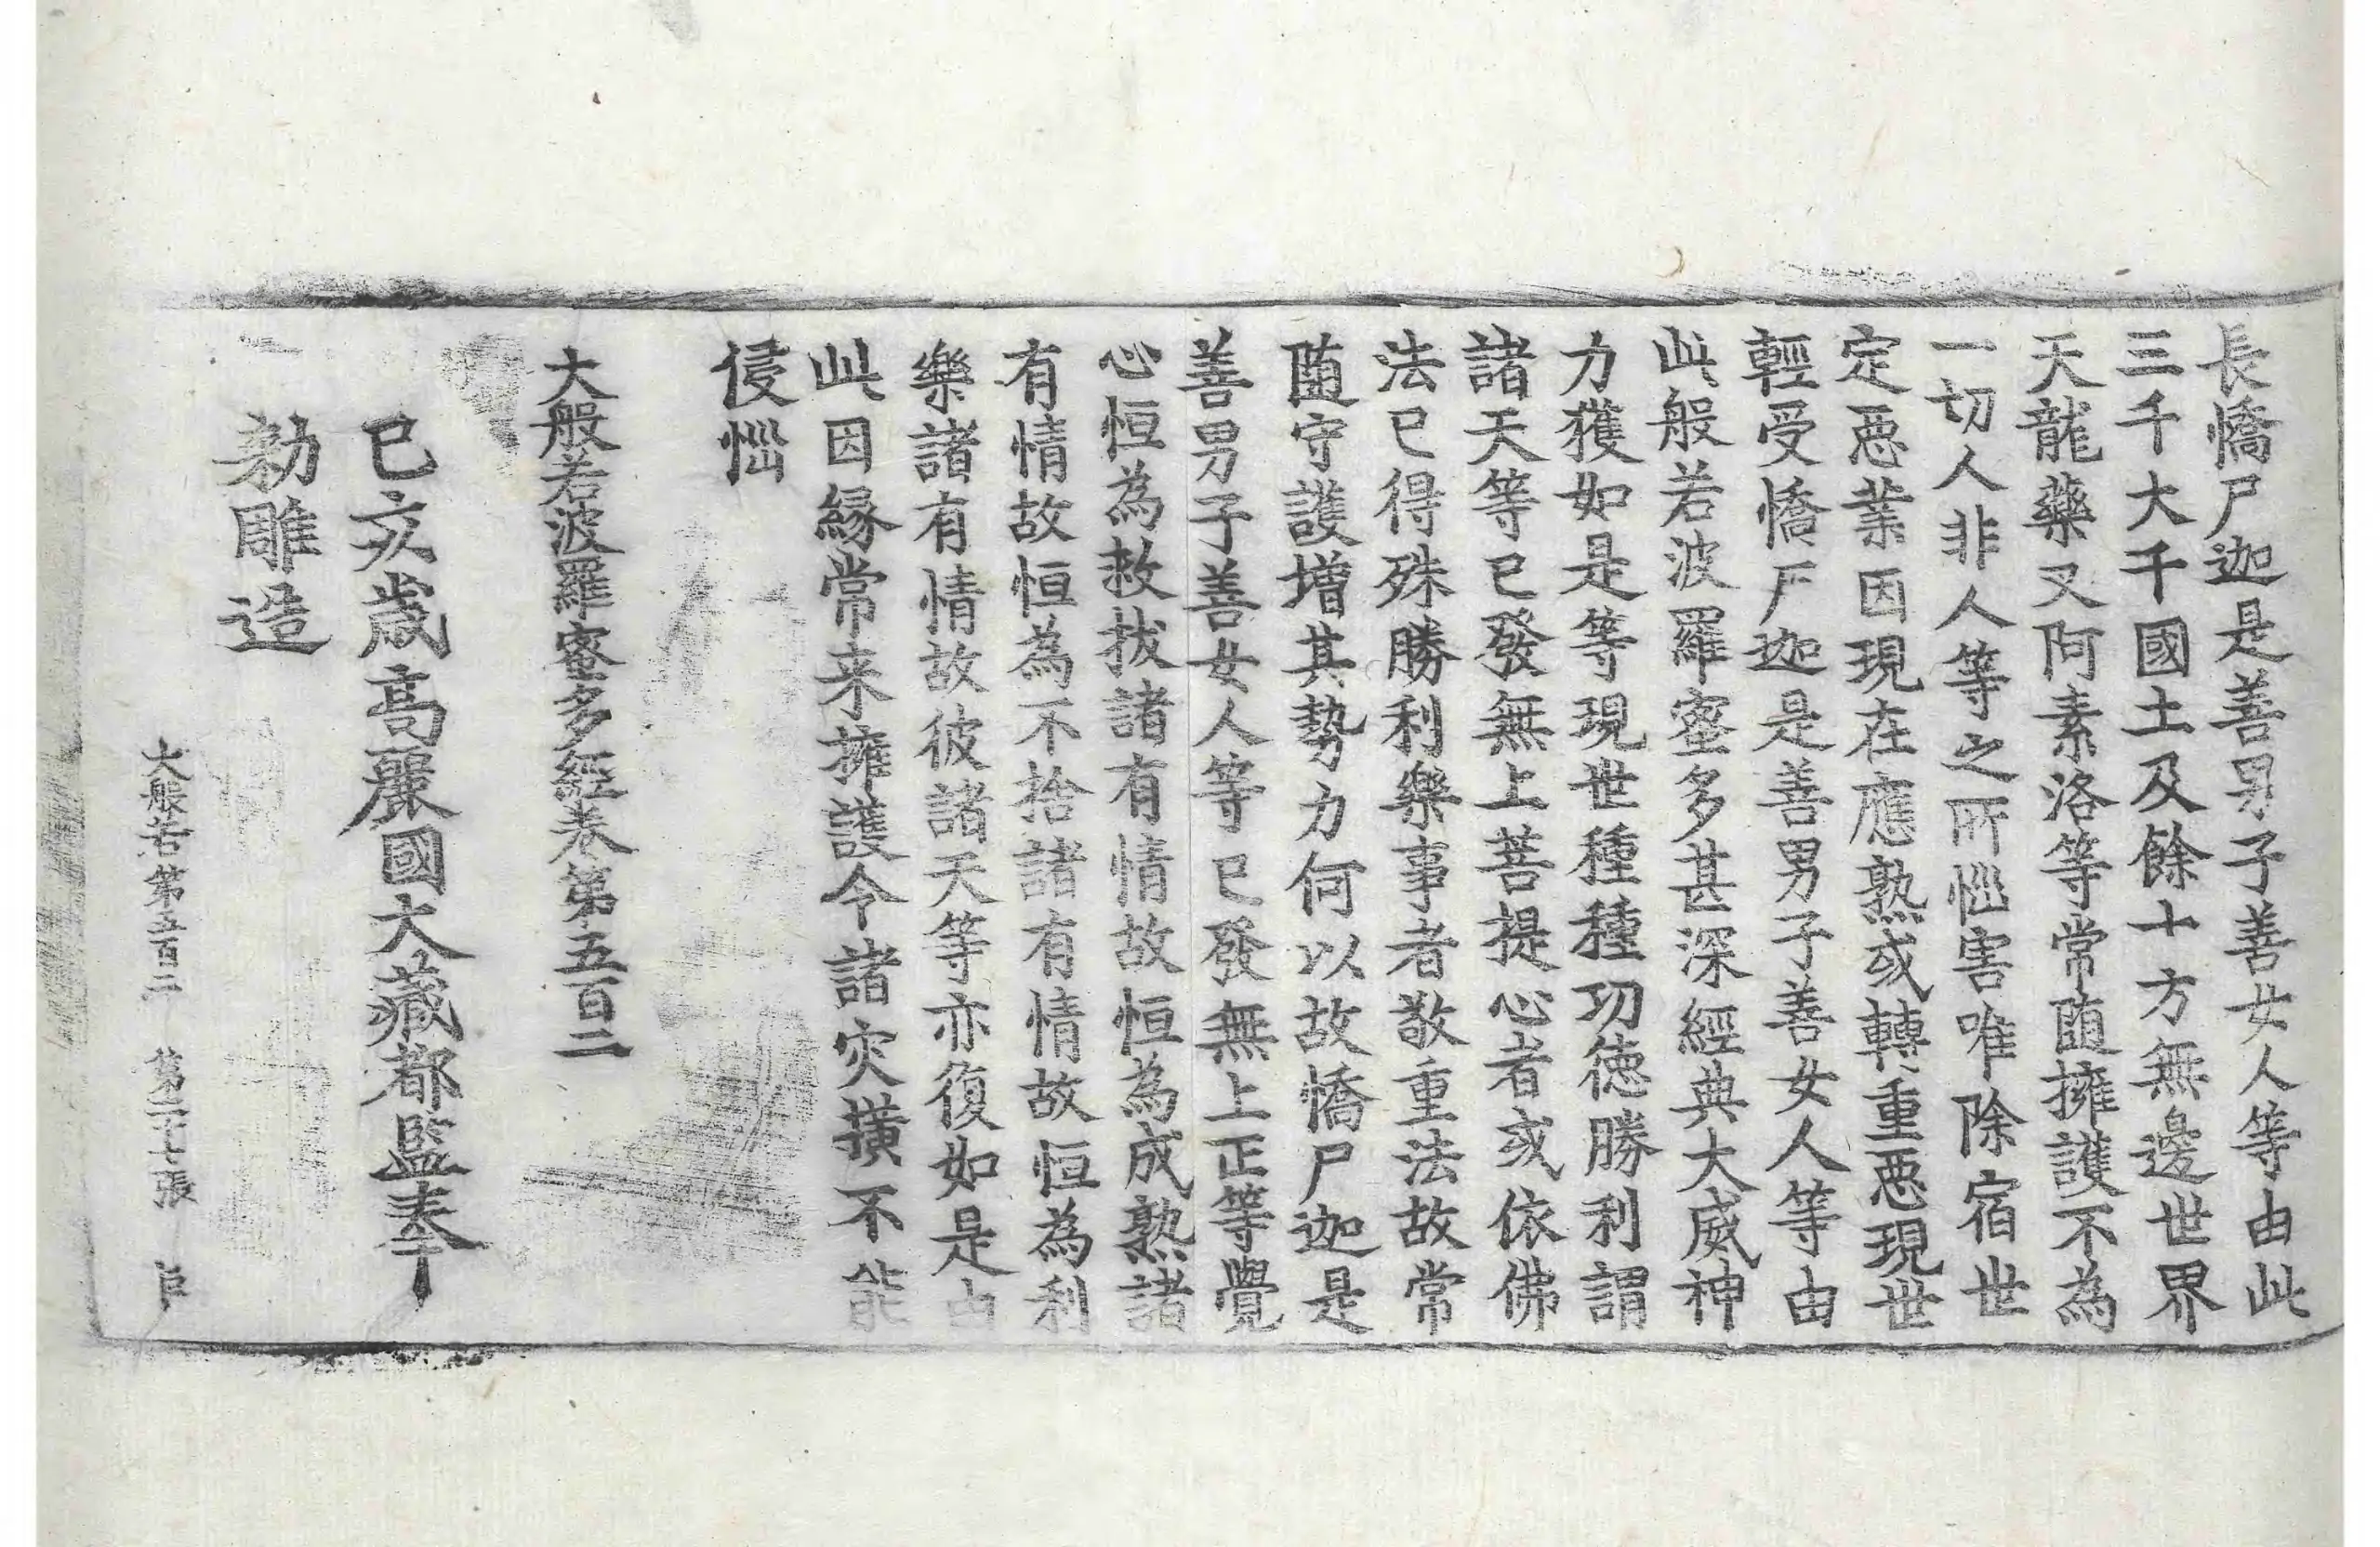 長憍尸迦是善男子善女人等由此
三千大千國土及餘十方無邊世界
天龍藥叉阿素洛等常隨擁護不為
一切人非人等之所惱害唯除宿世
定惡業因現在應熟或轉重惡現世
輕受憍尸迦是善男子善女人等由
此般若波羅蜜多甚深經典大威神
力獲如是等現世種種功徳勝利謂
諸天等已發無上菩提心者或依佛
法已得殊勝利樂事者敬重法故常
隨守護增其勢力何以故憍尸迦是
善男子善女人等已發無上正等覺
心恒為救拔諸有情故恒為成熟諸
有情故恒為不捨諸有情故恒為利
樂諸有情故彼諸天等亦復如是由
此因縁常来擁護令諸灾撗不能
侵惱
大般若波羅蜜多經卷第五百二
己亥歲高麗國大藏都監奉
勑雕造
大般若第五百二 第二十七張